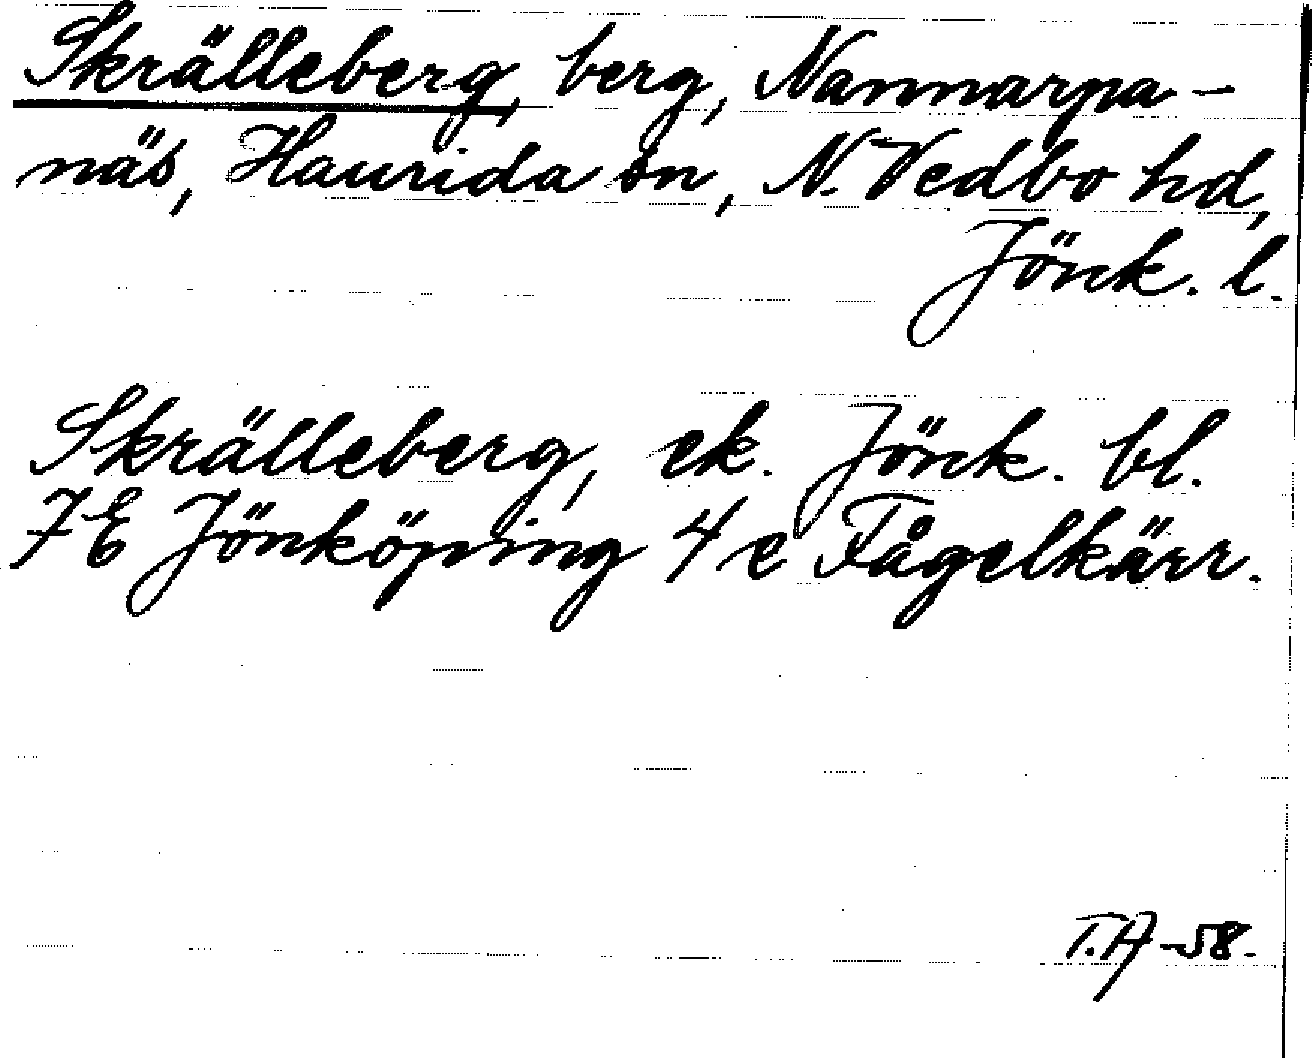 Skrälleberg, berg, Nannarpa-
näs, Haurida sn, N. Vedbo hd,
Jönk. l.
Skrälleberg, ek. Jönk. bl.
7E Jönköping 4 e Fågelkärr.
T.A -58.